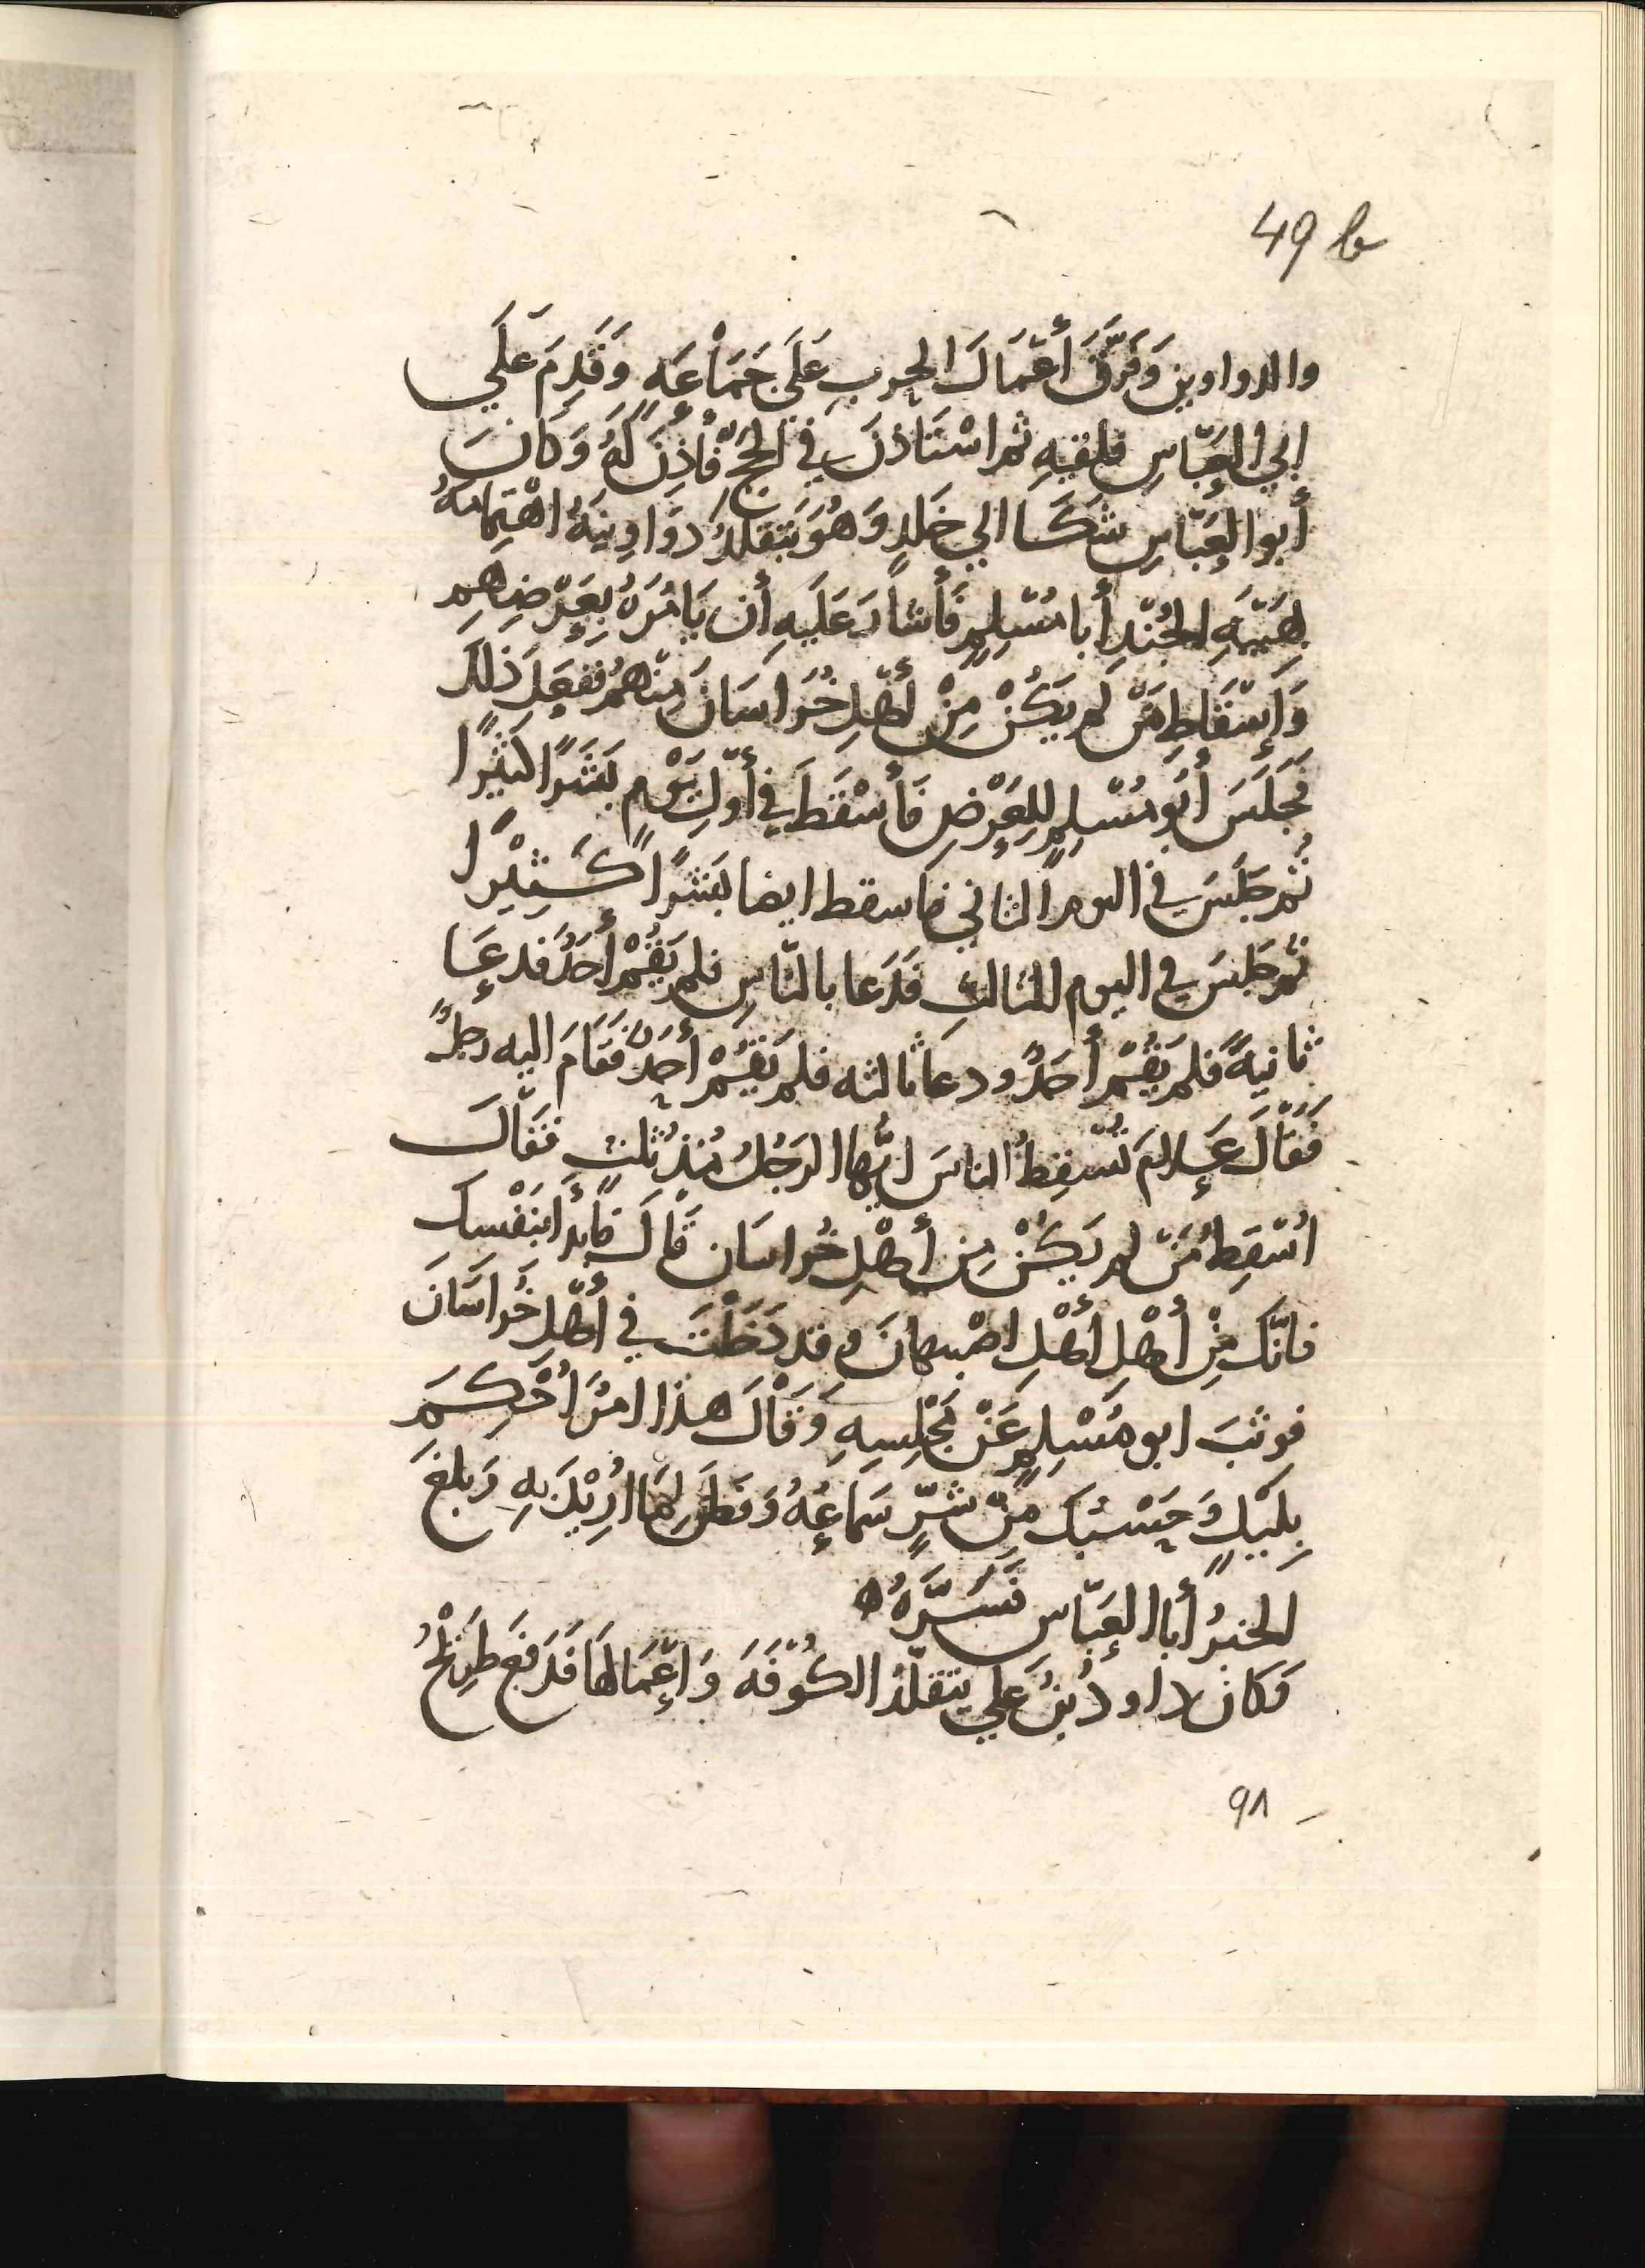 49 b
والدواوين وَفَرَّقَ أَعْمَالَ الحرب عَلَى جَمَاعَهٍ وَقَدِمَ عَلَي
ابي العَبّاسِ فلقيهِ ثم اسْتَاذنَ في الحَجّ فَأُذِنَ لَهُ وَكَانَ
أبو العَبّاسِ شَكَا الي خَلدٍ وَهُوَ يَتقلدُ دوَاوِينَهُ اهْتِمَامَهُ
بِهَيْبَهِ الجُنْدِ أبا مُسْلِمٍ فَأشارَ عَلَيهِ أن يَامُرَهُ بِعَرْضِهِم
وَإسْقَاطِ مَنْ لم يَكُنْ مِنْ أهْلِ خُرَاسَانَ مِنهُمْ ففَعَلَ ذلكَ
فَجَلَسَ أَبُو مُسْلمٍ لِلعَرْضِ فَأَسْقَطَ في أوّلِ يَوْمٍ بَشَرًا كَثِيْرًا
ثُمّ جَلَسَ في اليوم الثاني فاسقط ايضا بَشَرًا كَثِيْرًا
ثمّ جَلسَ في اليوم الثالثِ فَدَعا بالنّاسِ فلم يَقُمْ أحَدٌ فدعَا
ثانيةً فلم يَقُمْ أحَدٌ ودعا ثالثه فلم يَقُمْ أحَدٌ فَقَامَ اليه رجلٌ
فَقَالَ عَلامَ تُسْقِطُ الناسَ ايُّها الرجُلُ مُنذُ ثلثٍ فَقَالَ
اُسْقِطُ مَنْ لم يَكُنْ مِن أهْلِ خُراسَان قَالَ فَابْدأ بنَفْسكَ
فانّكَ مِنْ أهْلِ أهْلِ اصْبهانَ وقد دَخَلْتَ في أهْلِ خُرَاسَانَ
فوثبَ ابو مُسْلِمٍ عَنْ مَجْلِسِهِ وَقَالَ هذا امرٌ أُحْكِمَ
بِلَيْلٍ وَحَسْبُكَ مِنْ شَرٍّ سَمَاعُهُ وَفطَنَ لِمَا اُرِيْدَ بِهِ وَبلغَ
الخبرُ أبا العَبّاسِ فَسَرَّهُ ه
وَكَانَ داودُ بْنُ عَلي يَتقلّدُ الكُوْفَهَ وَاعْمَالهَا فَدَفَعَ طرِيْحُ
٩٨